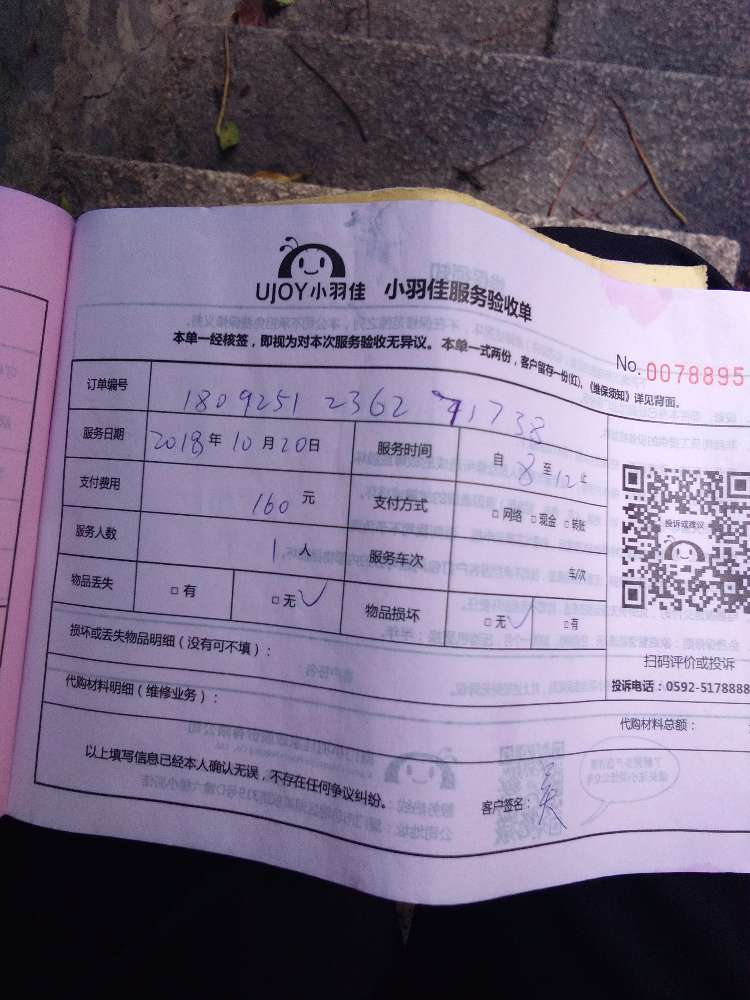 UJOY小羽佳 小羽佳服务验收单
本单一经核签，即视为对本次服务验收无异议。本单一式两份，客户留存一份(红)，《维保须知》详见背面。
No. 0078895
订单编号 1809251 2362 41738
服务日期 2018年10月20日 服务时间 自8至12止
支付费用 160元 支付方式 □网络 □现金 □转账
服务人数 1人 服务车次 车次
物品丢失 □有 □无✓ 物品损坏 □无✓ □有
投诉或建议
扫码评价或投诉
投诉电话：0592-5178888
损坏或丢失物品明细（没有可不填）：
代购材料明细（维修业务）：
代购材料总额：
以上填写信息已经本人确认无误，不存在任何争议纠纷。 客户签名：吴